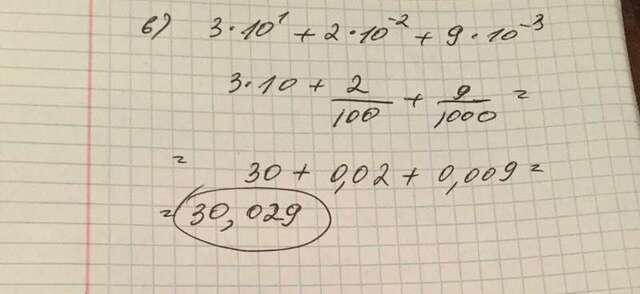 в) 3·10¹ + 2·10⁻² + 9·10⁻³
3·10 + 2/100 + 9/1000 =
= 30 + 0,02 + 0,009 =
= 30,029